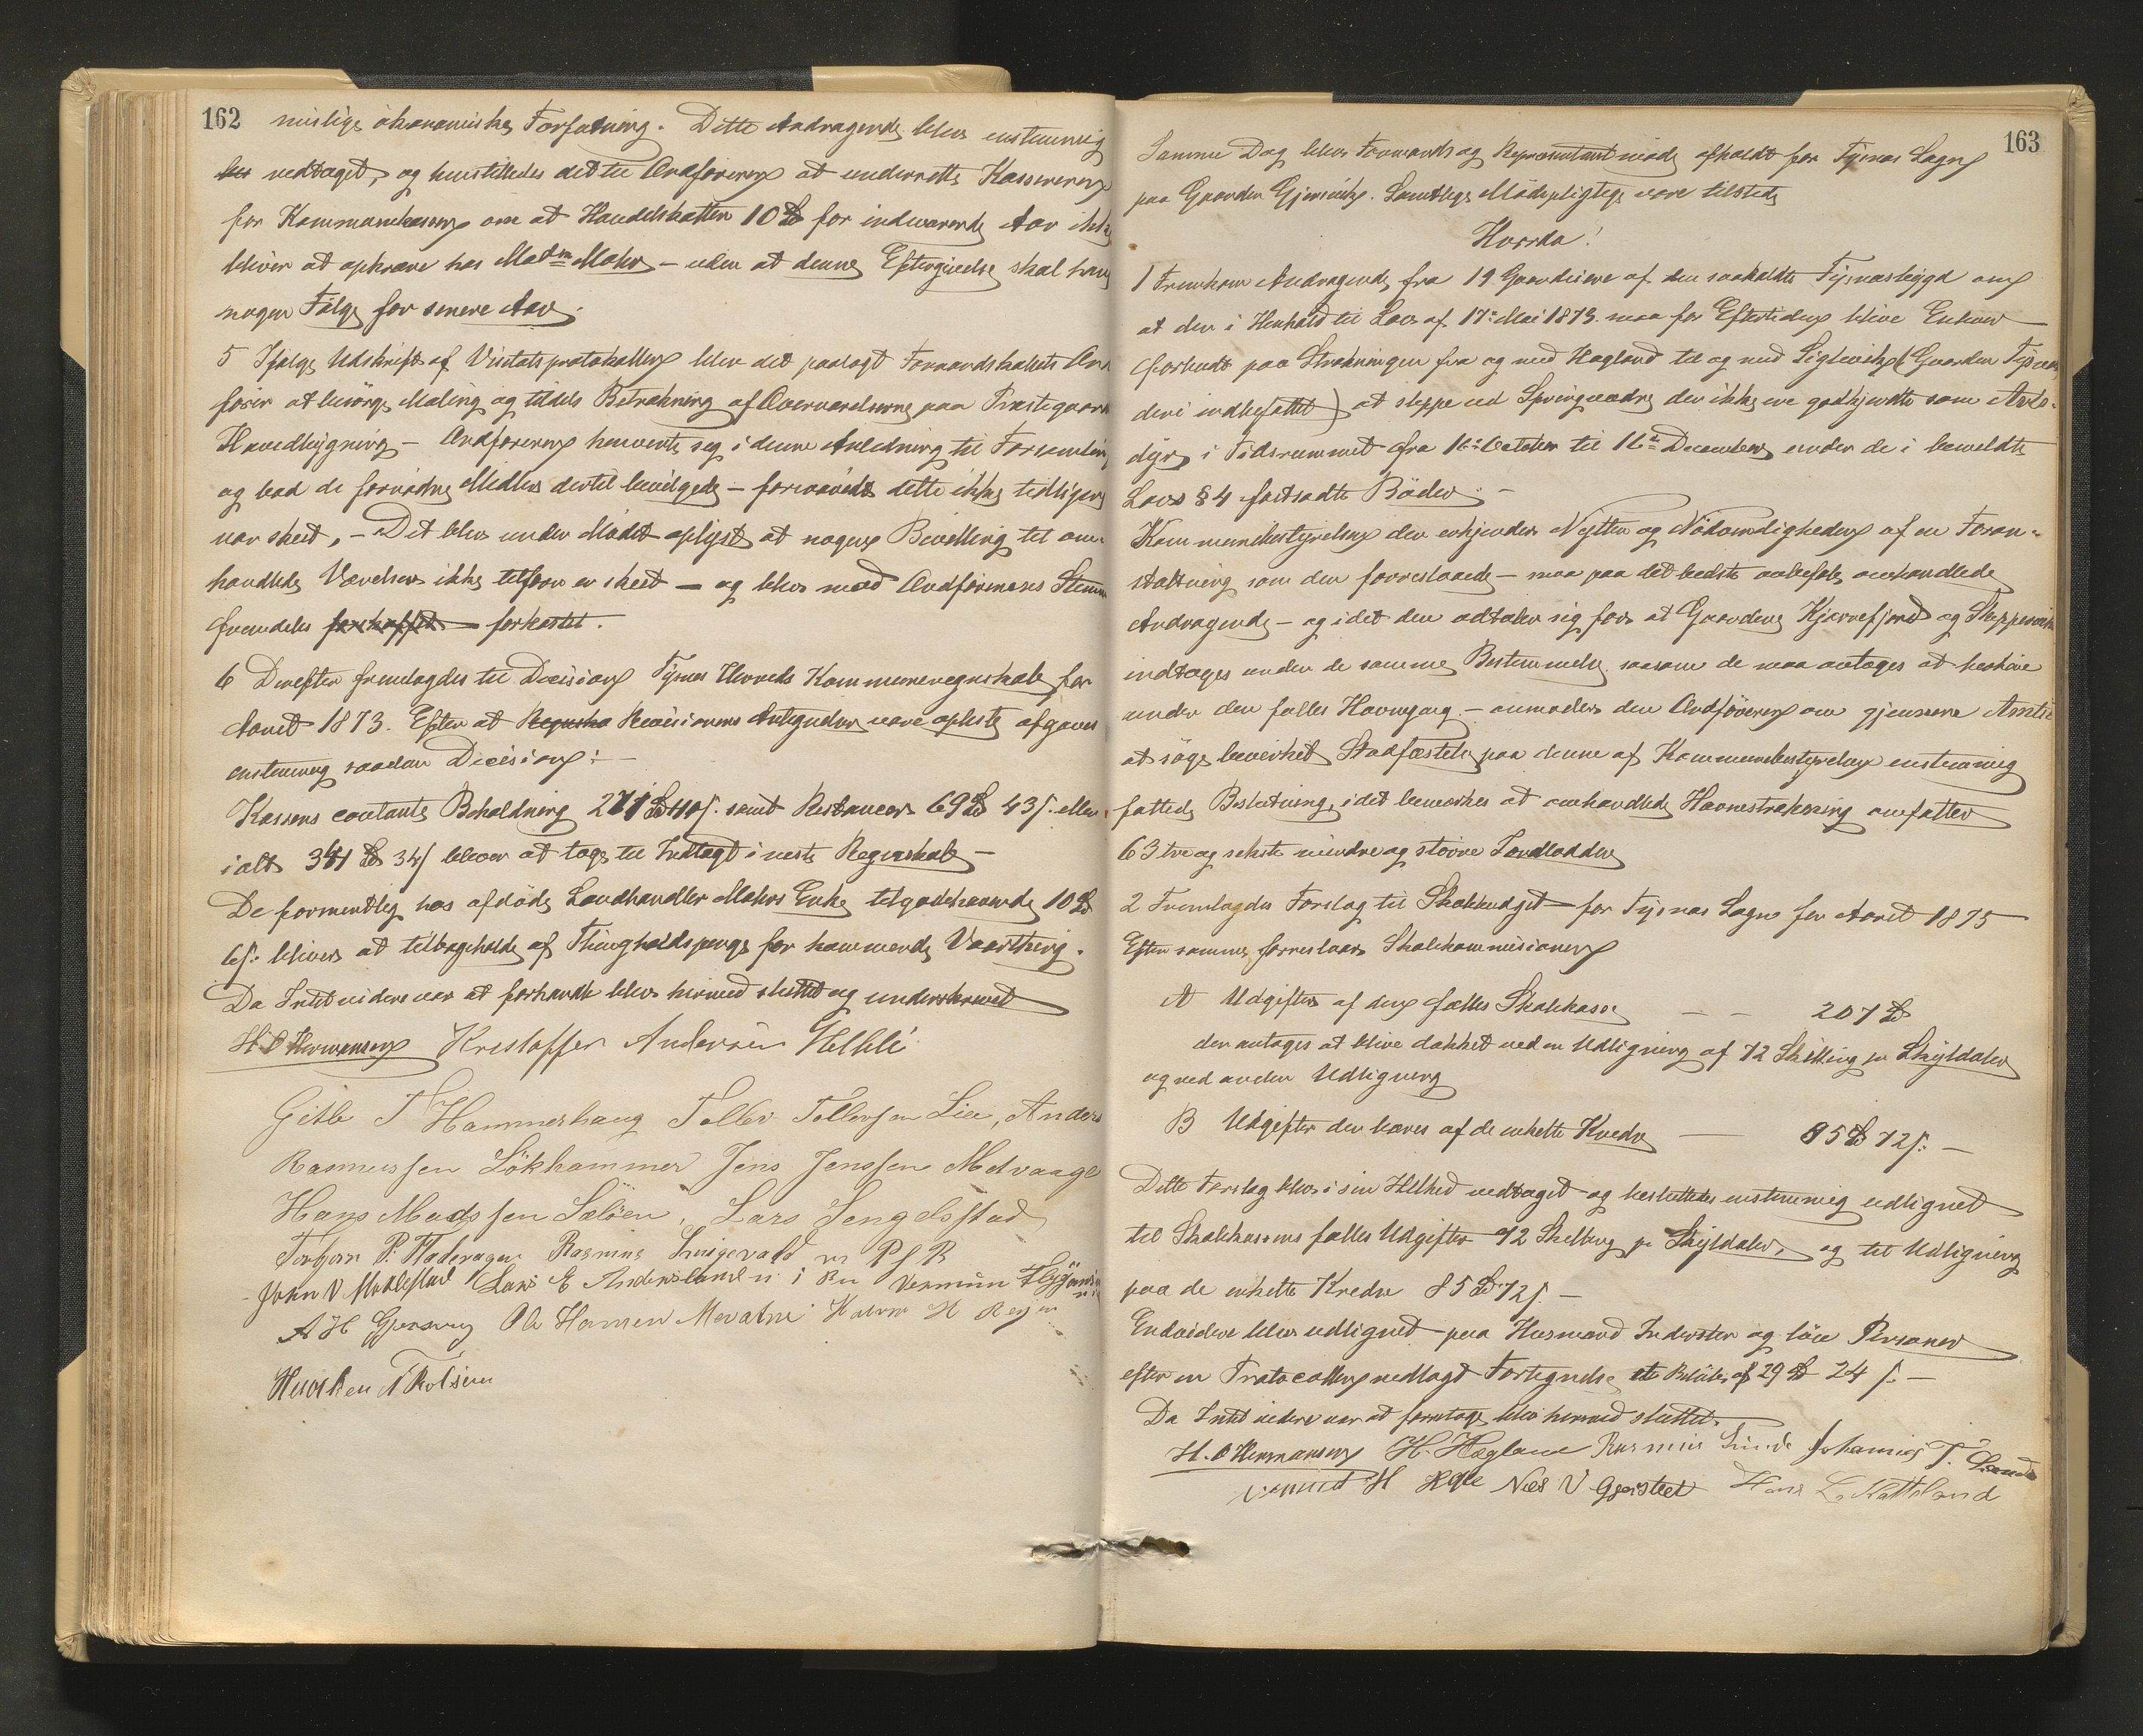 162
mislige økonomiske Forfatning. Dette Andragende blev enstemmig
vedtaget, og henstilledes det til Ordføreren at underrette Kassereren
for Kommunekassen om at Handelskatten 10 Spd for indeværende Aar ikke
bliver at opkræve hos Madm Mohr – uden at denne Eftergivelse skal have
nogen Følge for senere Aar.
5 Ifølge Udskrift af Visitatsprotokollen blev det paalagt Formandskabets Ord
fører at besørge Maling og tildels Betrækning af Overværelserne paa Præstegaardens
Hovedbygning – Ordføreren henvendte sig i denne Anledning til Forsamlingen
og bad de fornødne Midler dertil bevilgede – forsaavidt dette ikke tidligere
var skeet, – Det blev under Mødet oplyst at nogen Bevilling til om-
handlede Værelser ikke tilforn er skeet – og blev med Ordførerens Stemme
fremdeles forkastet.
6 Derefter fremlagdes til Decision Tysnes Herreds Kommuneregnskab for
Aaret 1873. Efter at Revisionens Antegnelser vare oplæste afgaves
enstemmig saadan Decision: –
Kassens contante Beholdning 271 Spd 110 s. samt Restancer 69 Spd 43 s. eller
ialt 341 Spd 34 s bliver at tage til Indtægt i næste Regnskab –
De formentlig hos afdøde Landhandler Mohrs Enke tilgodehavende 10 Spd
6 s: bliver at tilbageholde af Thingholdspenge for kommende Vaarthing.
Da Intet videre var at forhandle blev hermed sluttet og underskrevet
H O Hermansen Kristoffer Andersen Helle
Gitle T Hammerhaug Tollev Tollevsen Lie, Anders
Rasmussen Løkhammer Jens Jenssen Medvaage
Hans Madssen Sæløen, Lars Lengelsstad
Torbjørn P. Fladevagen Rasmus m P f R
John V Mehlestad Lars E Andersland
A H Gjersvig Ole Hansen Mevatne H
163
Samme Dag blev Formands og Repræsentantmøde afholdt for Tysnæs Sogn
paa Gaarden Gjersvik. Samtlige Mødepligtige vare tilstede
Hvorda!
1 Fremkom Andragende fra 19 Gaardeiere af den saakaldte Tysnæsbygd om
at der i Henhold til Lov af 17de Mai 1873 maa for Eftertiden blive Enhver
forbudt paa Strækningen fra og med Hagland til og med Siglevik (Gaarden Tysnæs
deri indbefattet) at sleppe ud Springvædre der ikke ere godkjendte som Avls-
dyr i Tidsrummet fra 1ste October til 16de December under de i bemeldte
Lovs § 4 fastsatte Bøder. –
Kommunebestyrelsen der erkjender Nytten og Nødvendigheden af en Foran-
staltning som den foreslaaede – maa paa det bedste anbefale omhandlede
Andragende – og idet den udtaler sig for at Gaardene Kjærrefjord og Skeppesvik
indtages under de samme Bestemmelse saasom de maa antages at henhøre
under den fælles Havnegang – anmodes den Ordføreren om gjennem Amtet
at søge bevirket Stadfæstelse paa denne af Kommunebestyrelsen enstemmig
fattede Beslutning, idet bemærkes at omhandlede Havnestrækning omfatter
63 tre og sexti mindre og større Landlodder
2 Fremlagdes Forslag til Skolebudget for Tysnæs Sogn for Aaret 1875
Efter samme foreslaar Skolekommisionen
A Udgifter af den fælles Skolekasse – – 207 Spd
der antages at blive dækket ved en Udligning af 72 Skilling pr Skyldaler
og ved anden Udligning
B Udgifter der bæres af de enkelte Kredse – 85 Spd 72 s: –
Dette Forslag blev i sin Helhed vedtaget og besluttedes enstemmig udlignet
til Skolekassens fælles Udgifter 72 Skilling pr Skyldaler, og til Udligning
paa de enkelte Kredse 85 Spd 72 s. –
Endvidere blev udlignet paa Husmænd Inderster og løse Personer
efter en Protocollen vedlagt Fortegnelse et Beløb af 29 Spd 24 s. –
Da Intet videre var at foretage blev hermed sluttet.
H. O Hermansen H. Hagland Rasmus Johannes T.
H Nils V Gjerstad Hans L Katteland